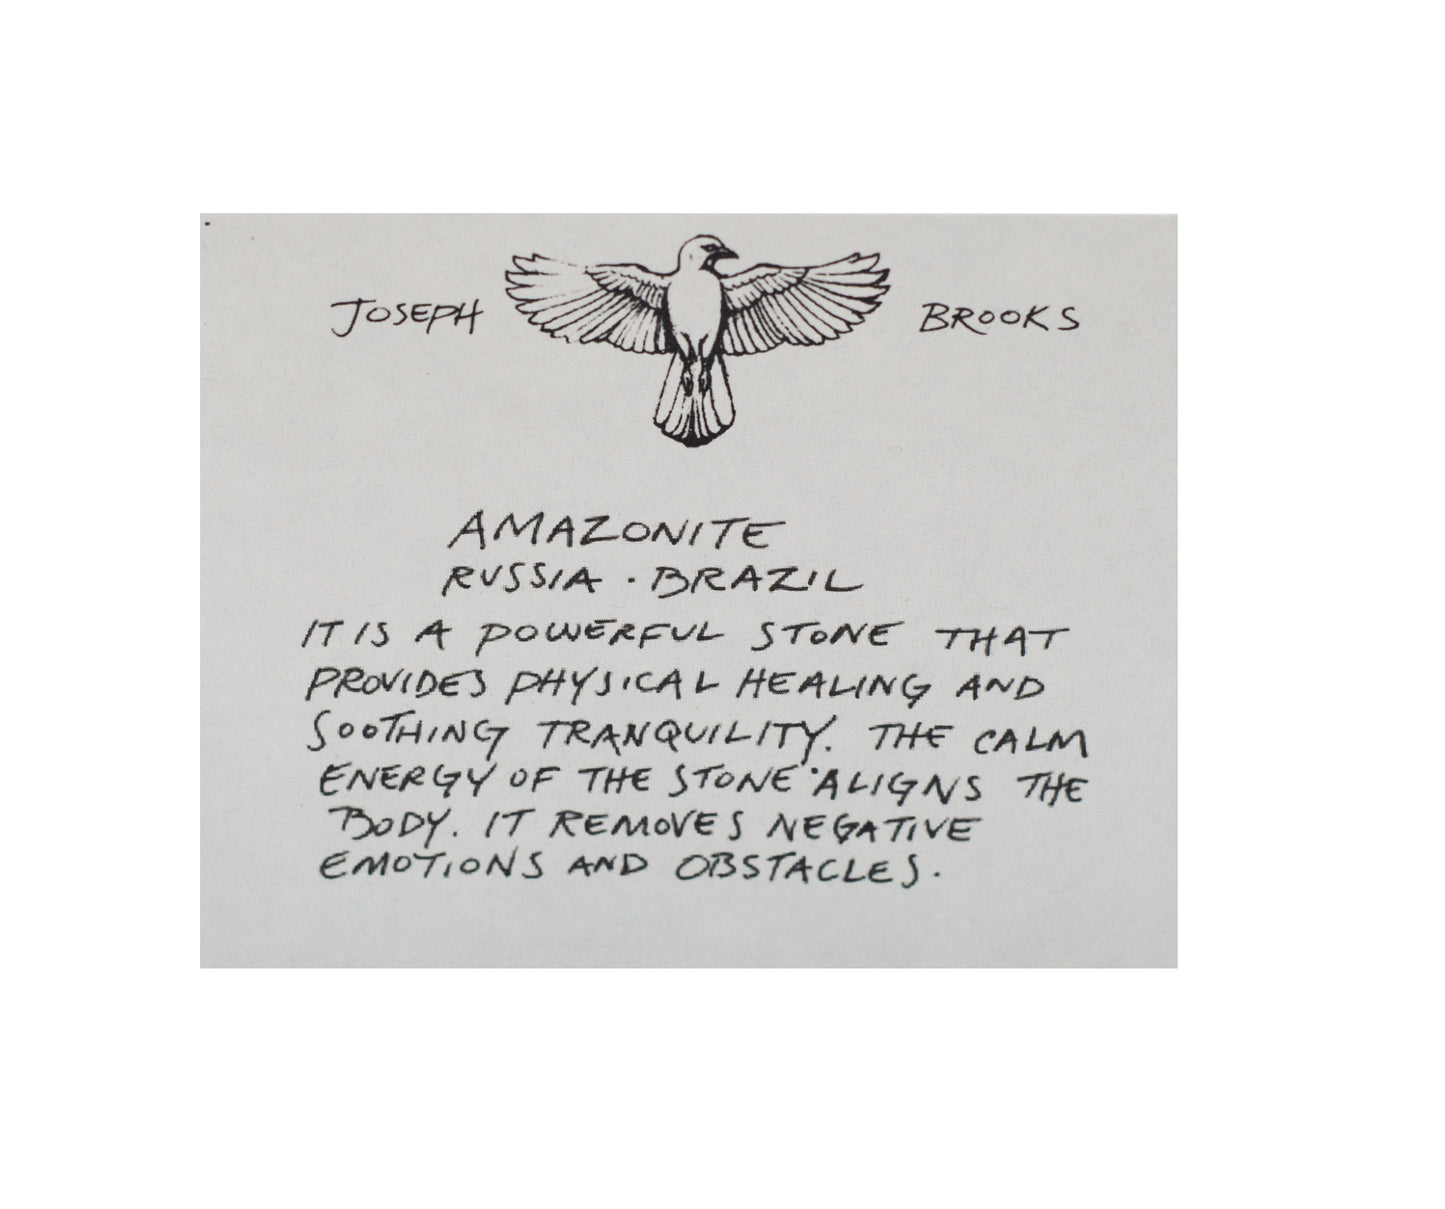 JOSEPH BROOKS
AMAZONITE
RUSSIA · BRAZIL
IT IS A POWERFUL STONE THAT
PROVIDES PHYSICAL HEALING AND
SOOTHING TRANQUILITY. THE CALM
ENERGY OF THE STONE ALIGNS THE
BODY. IT REMOVES NEGATIVE
EMOTIONS AND OBSTACLES.